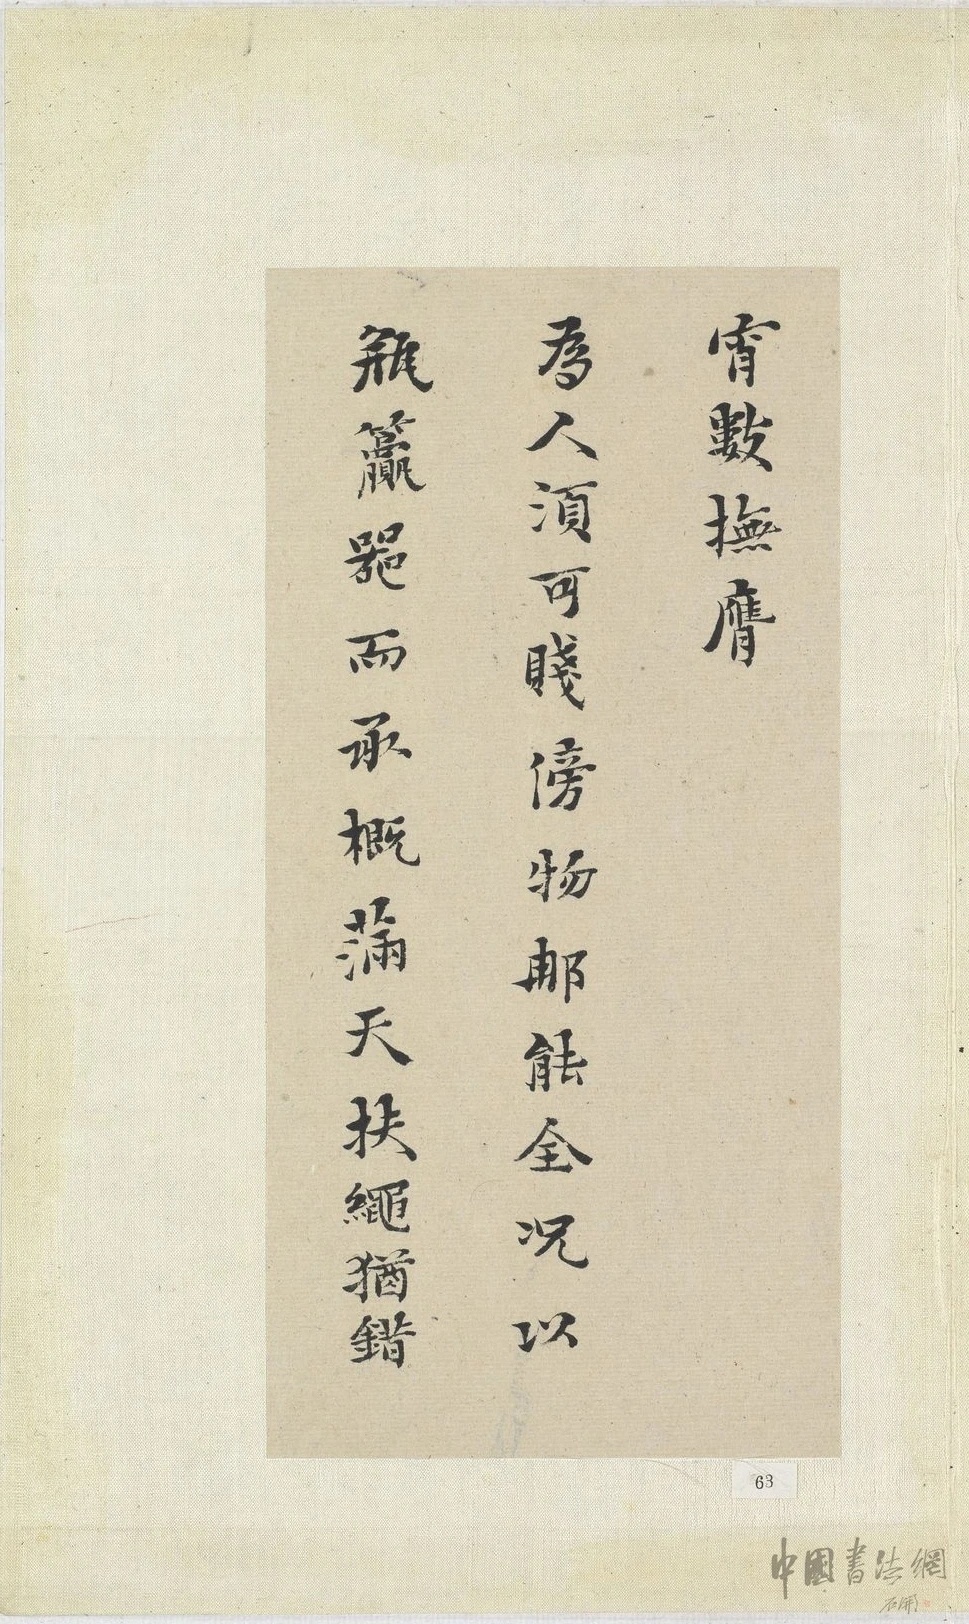 宵數撫膺
為人須可賤傍物那能全况以
瓶籯器而承概滿天扶繩猶錯
63
中國書法網
石開